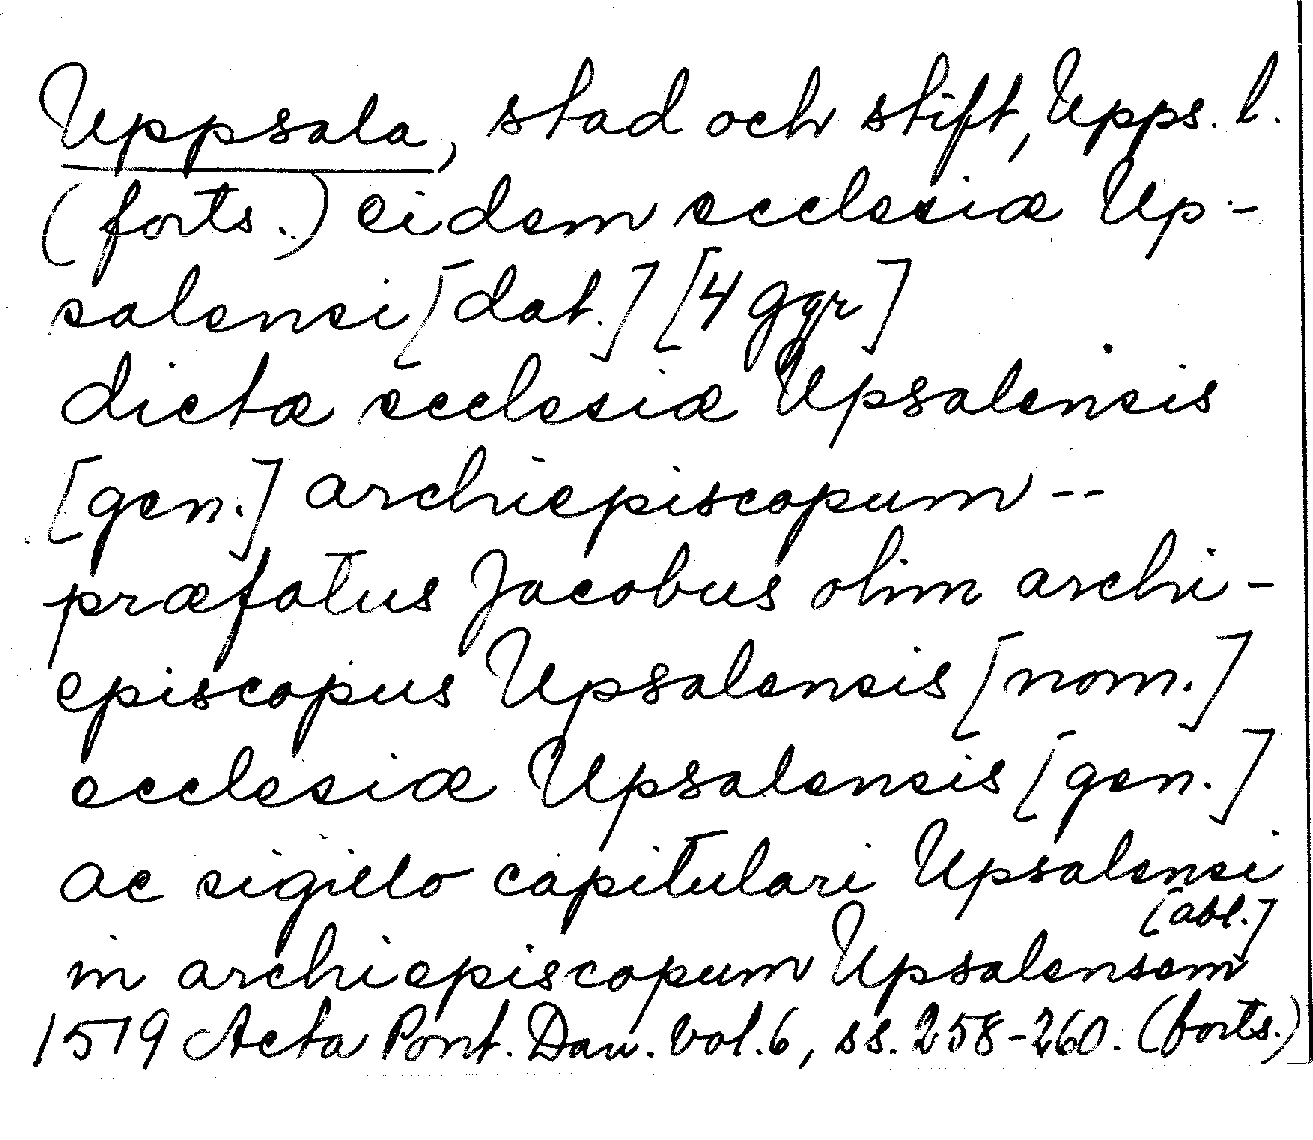 Uppsala, stad och stift, Upps. l.
(forts.) eidem ecclesiæ Up-
salensi [dat.] [4 ggr]
dictæ ecclesiæ Upsalensis
[gen.] archiepiscopum --
præfatus Jacobus olim archi-
episcopus Upsalensis [nom.]
ecclesiæ Upsalensis [gen.]
ac sigillo capitulari Upsalensi
[abl.]
in archiepiscopum Upsalensem
1519 Acta Pont. Dan. vol. 6, ss. 258-260. (forts.)